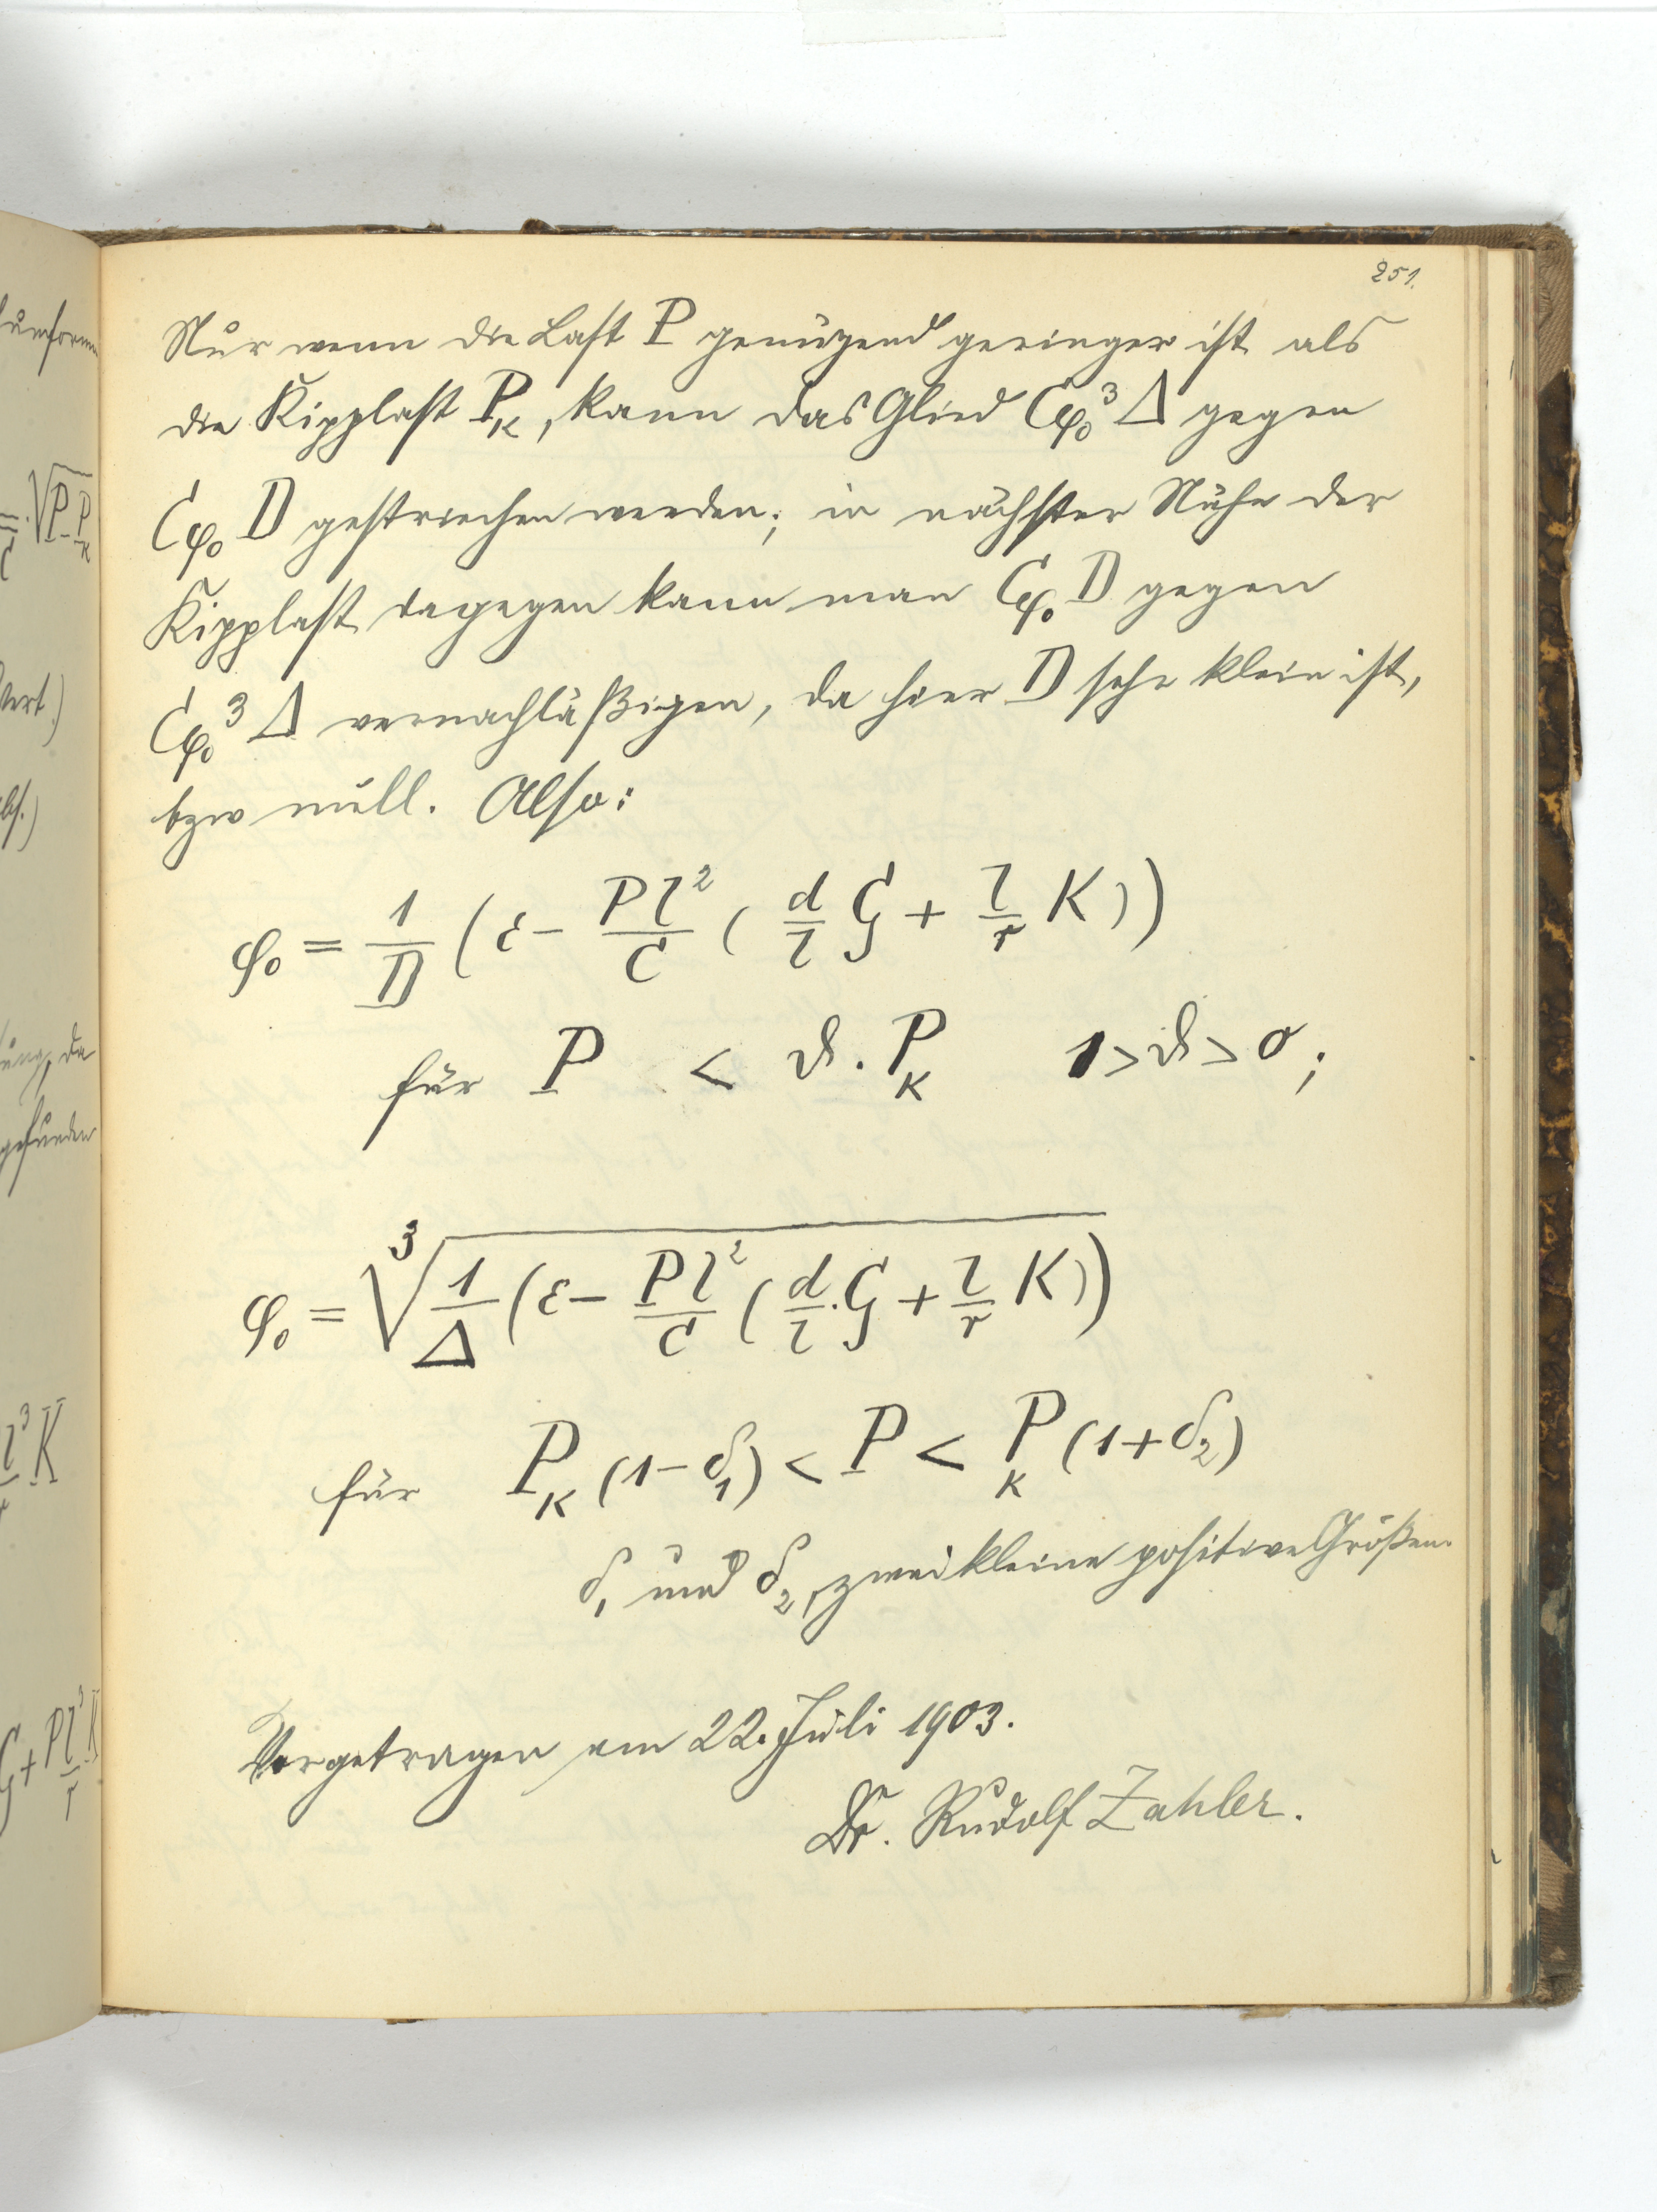 251.
Nur wenn die Last P genügend geringer ist als
die Kipplast P_K, kann das Glied Cφ₀³Δ gegen
Cφ₀ D gestrichen werden; in nächster Nähe der
Kipplast dagegen kann man Cφ₀ D gegen
Cφ₀³ Δ vernachläßigen, da hier D sehr klein ist,
bzw null. Also:
φ₀ = 1/D (ε − Pl²/C (d/l G + l/r K))
für P < ϑ . P_K 1 > ϑ > 0 ;
φ₀ = ∛(1/Δ (ε − Pl²/C (d/l . G + l/r K))
für P_K (1 − δ₁) < P < P_K (1 + δ₂)
δ₁ und δ₂, zwei kleine positive Größen.
Vorgetragen am 22. Juli 1903.
Dr. Rudolf Zahler.
umform
√P P_K
Wert.)
abs.)
ung, da
gefunden
l³ K
G + Pl³/r K